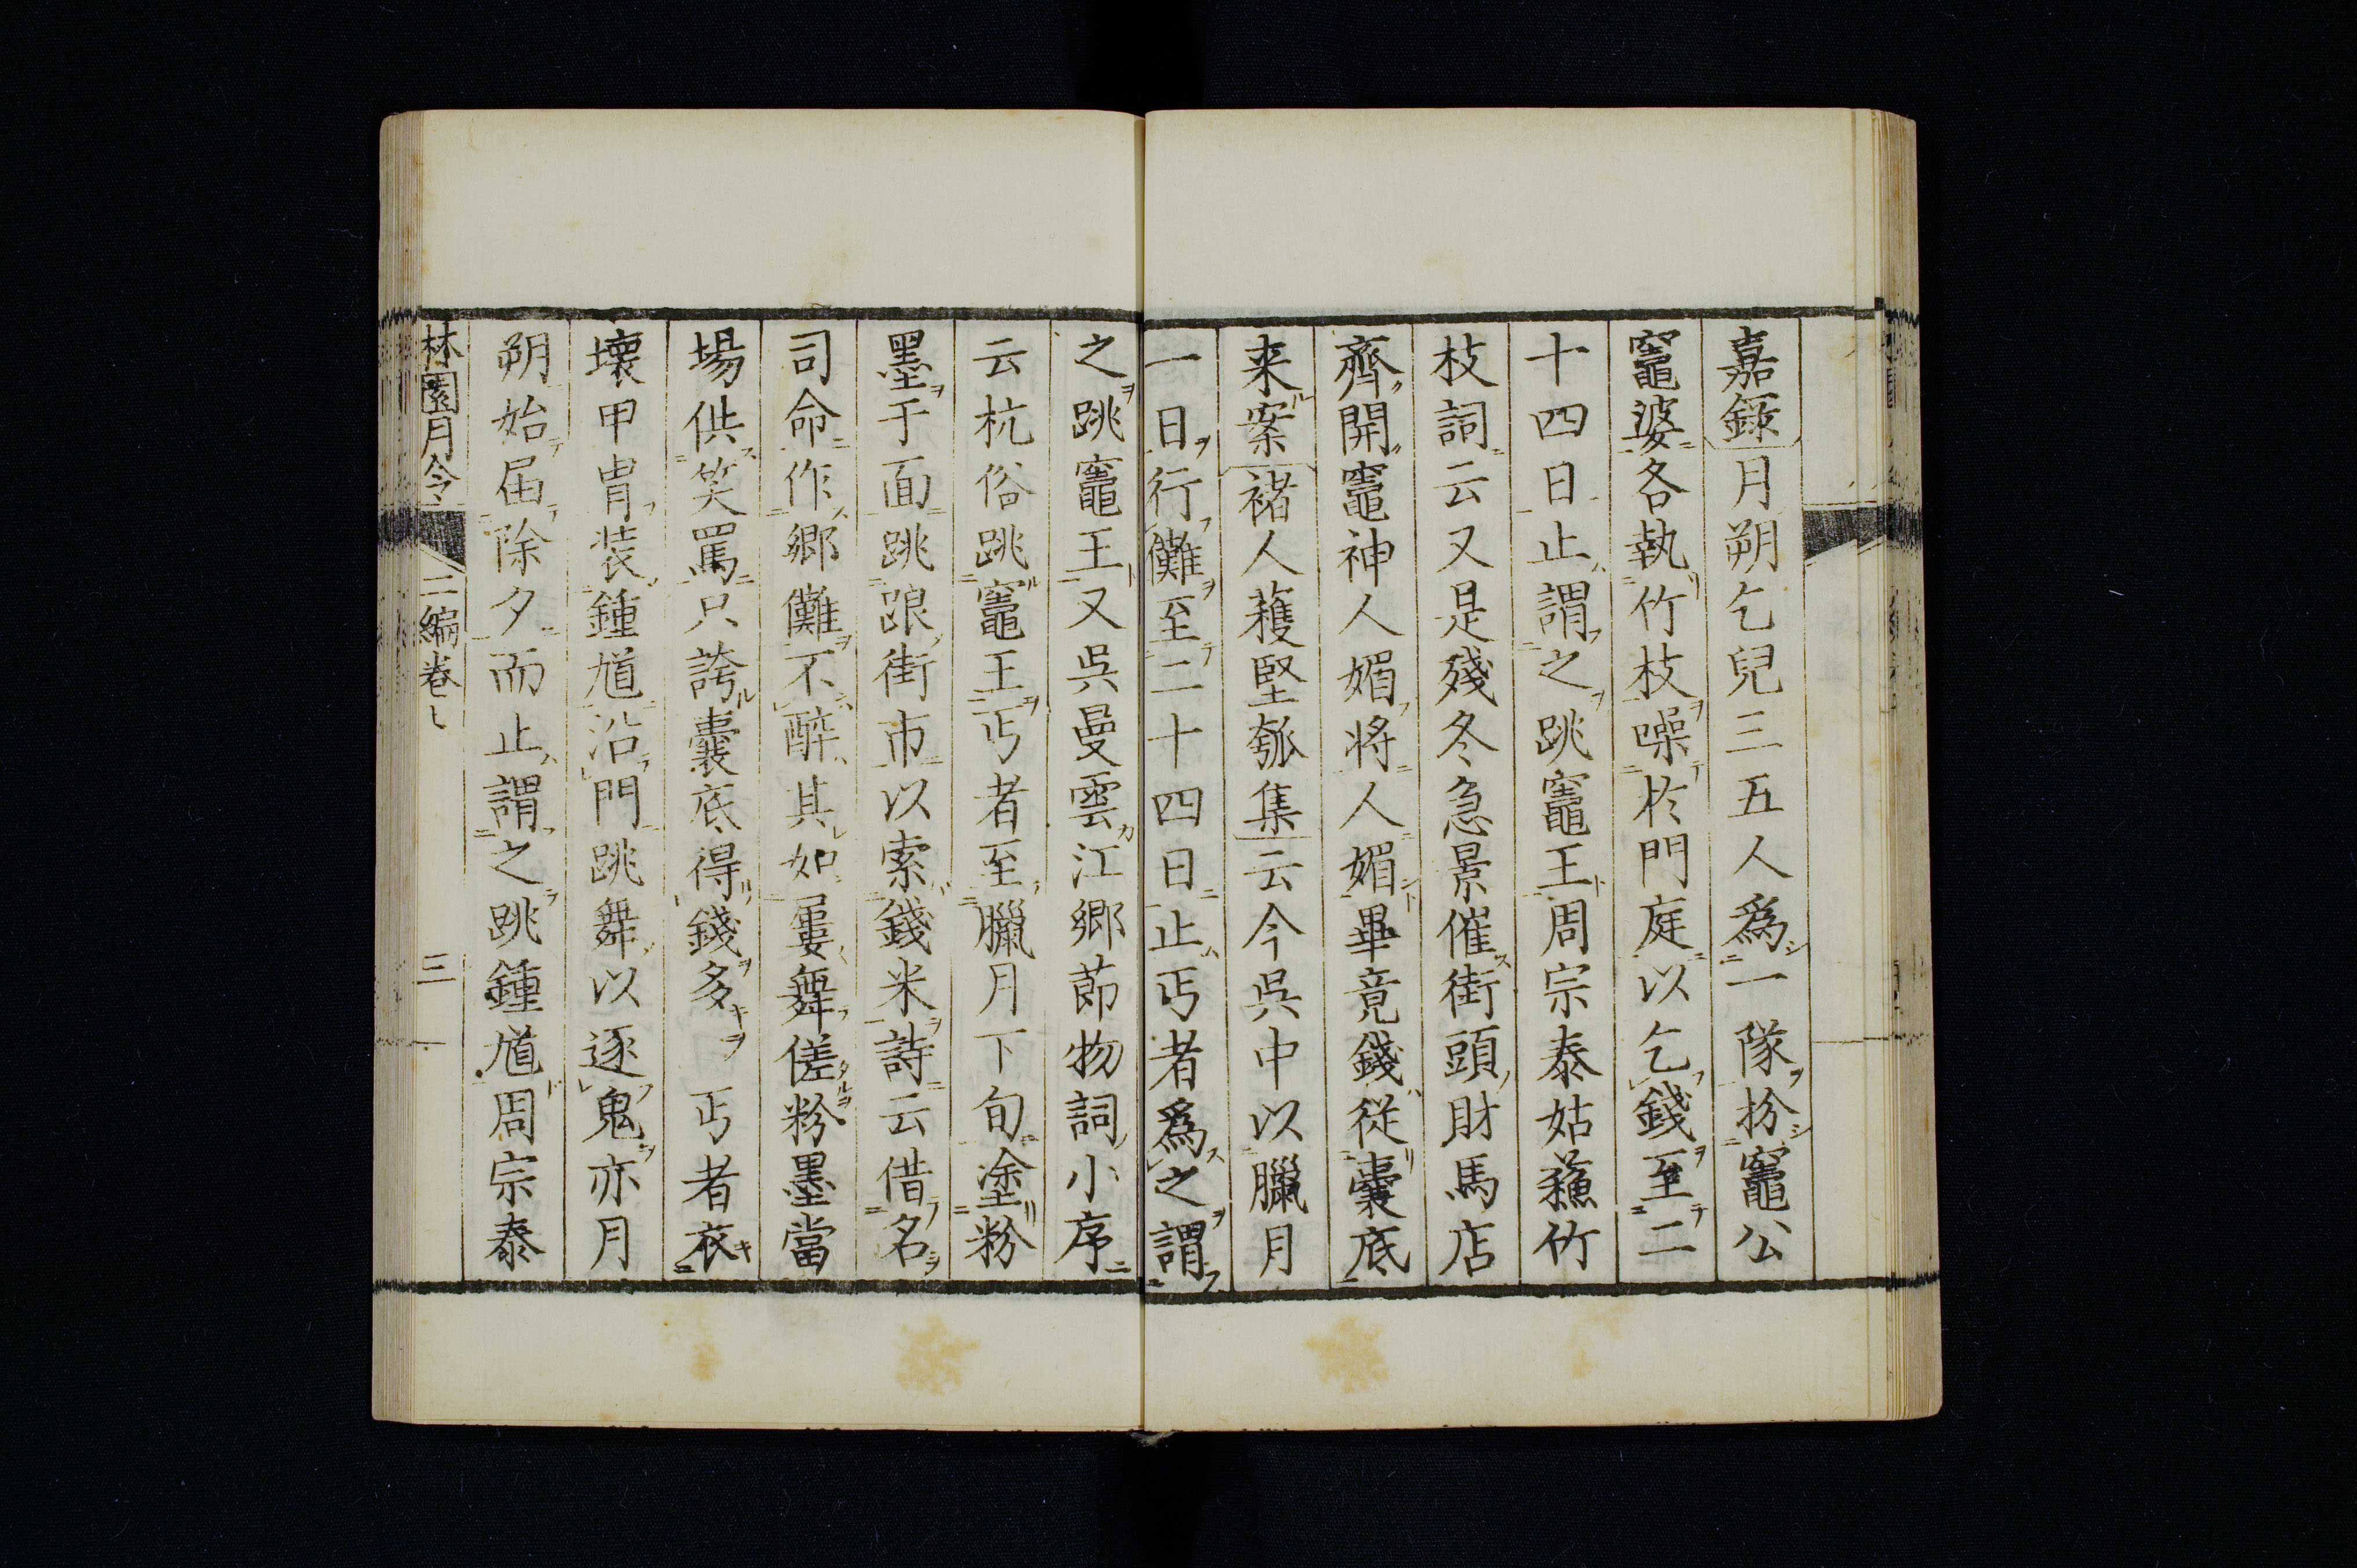 嘉録月朔乞兒三五人爲一隊扮竈公
竈婆各執竹枝噪於門庭以乞錢至二
十四日止謂之跳竈王周宗泰姑蘓竹
枝詞云又是殘冬急景催街頭財馬店
齊開竈神人媚將人媚畢竟錢從囊底
来案褚人蓰堅瓠集云今吳中以臘月
一日行儺至二十四日止丐者爲之謂
之跳竈王又吳曼雲江鄉節物詞小序
云杭俗跳竈王丐者至臘月下旬塗粉
墨于面跳踉街市以索錢米詩云借名
司命作鄉儺不醉其如屢舞傞粉墨當
場供笑罵只誇囊底得錢多丐者衣
壞甲胄装鍾馗沿門跳舞以逐鬼亦月
朔始届除夕而止謂之跳鍾馗周宗泰
林園月令 二編卷七 三